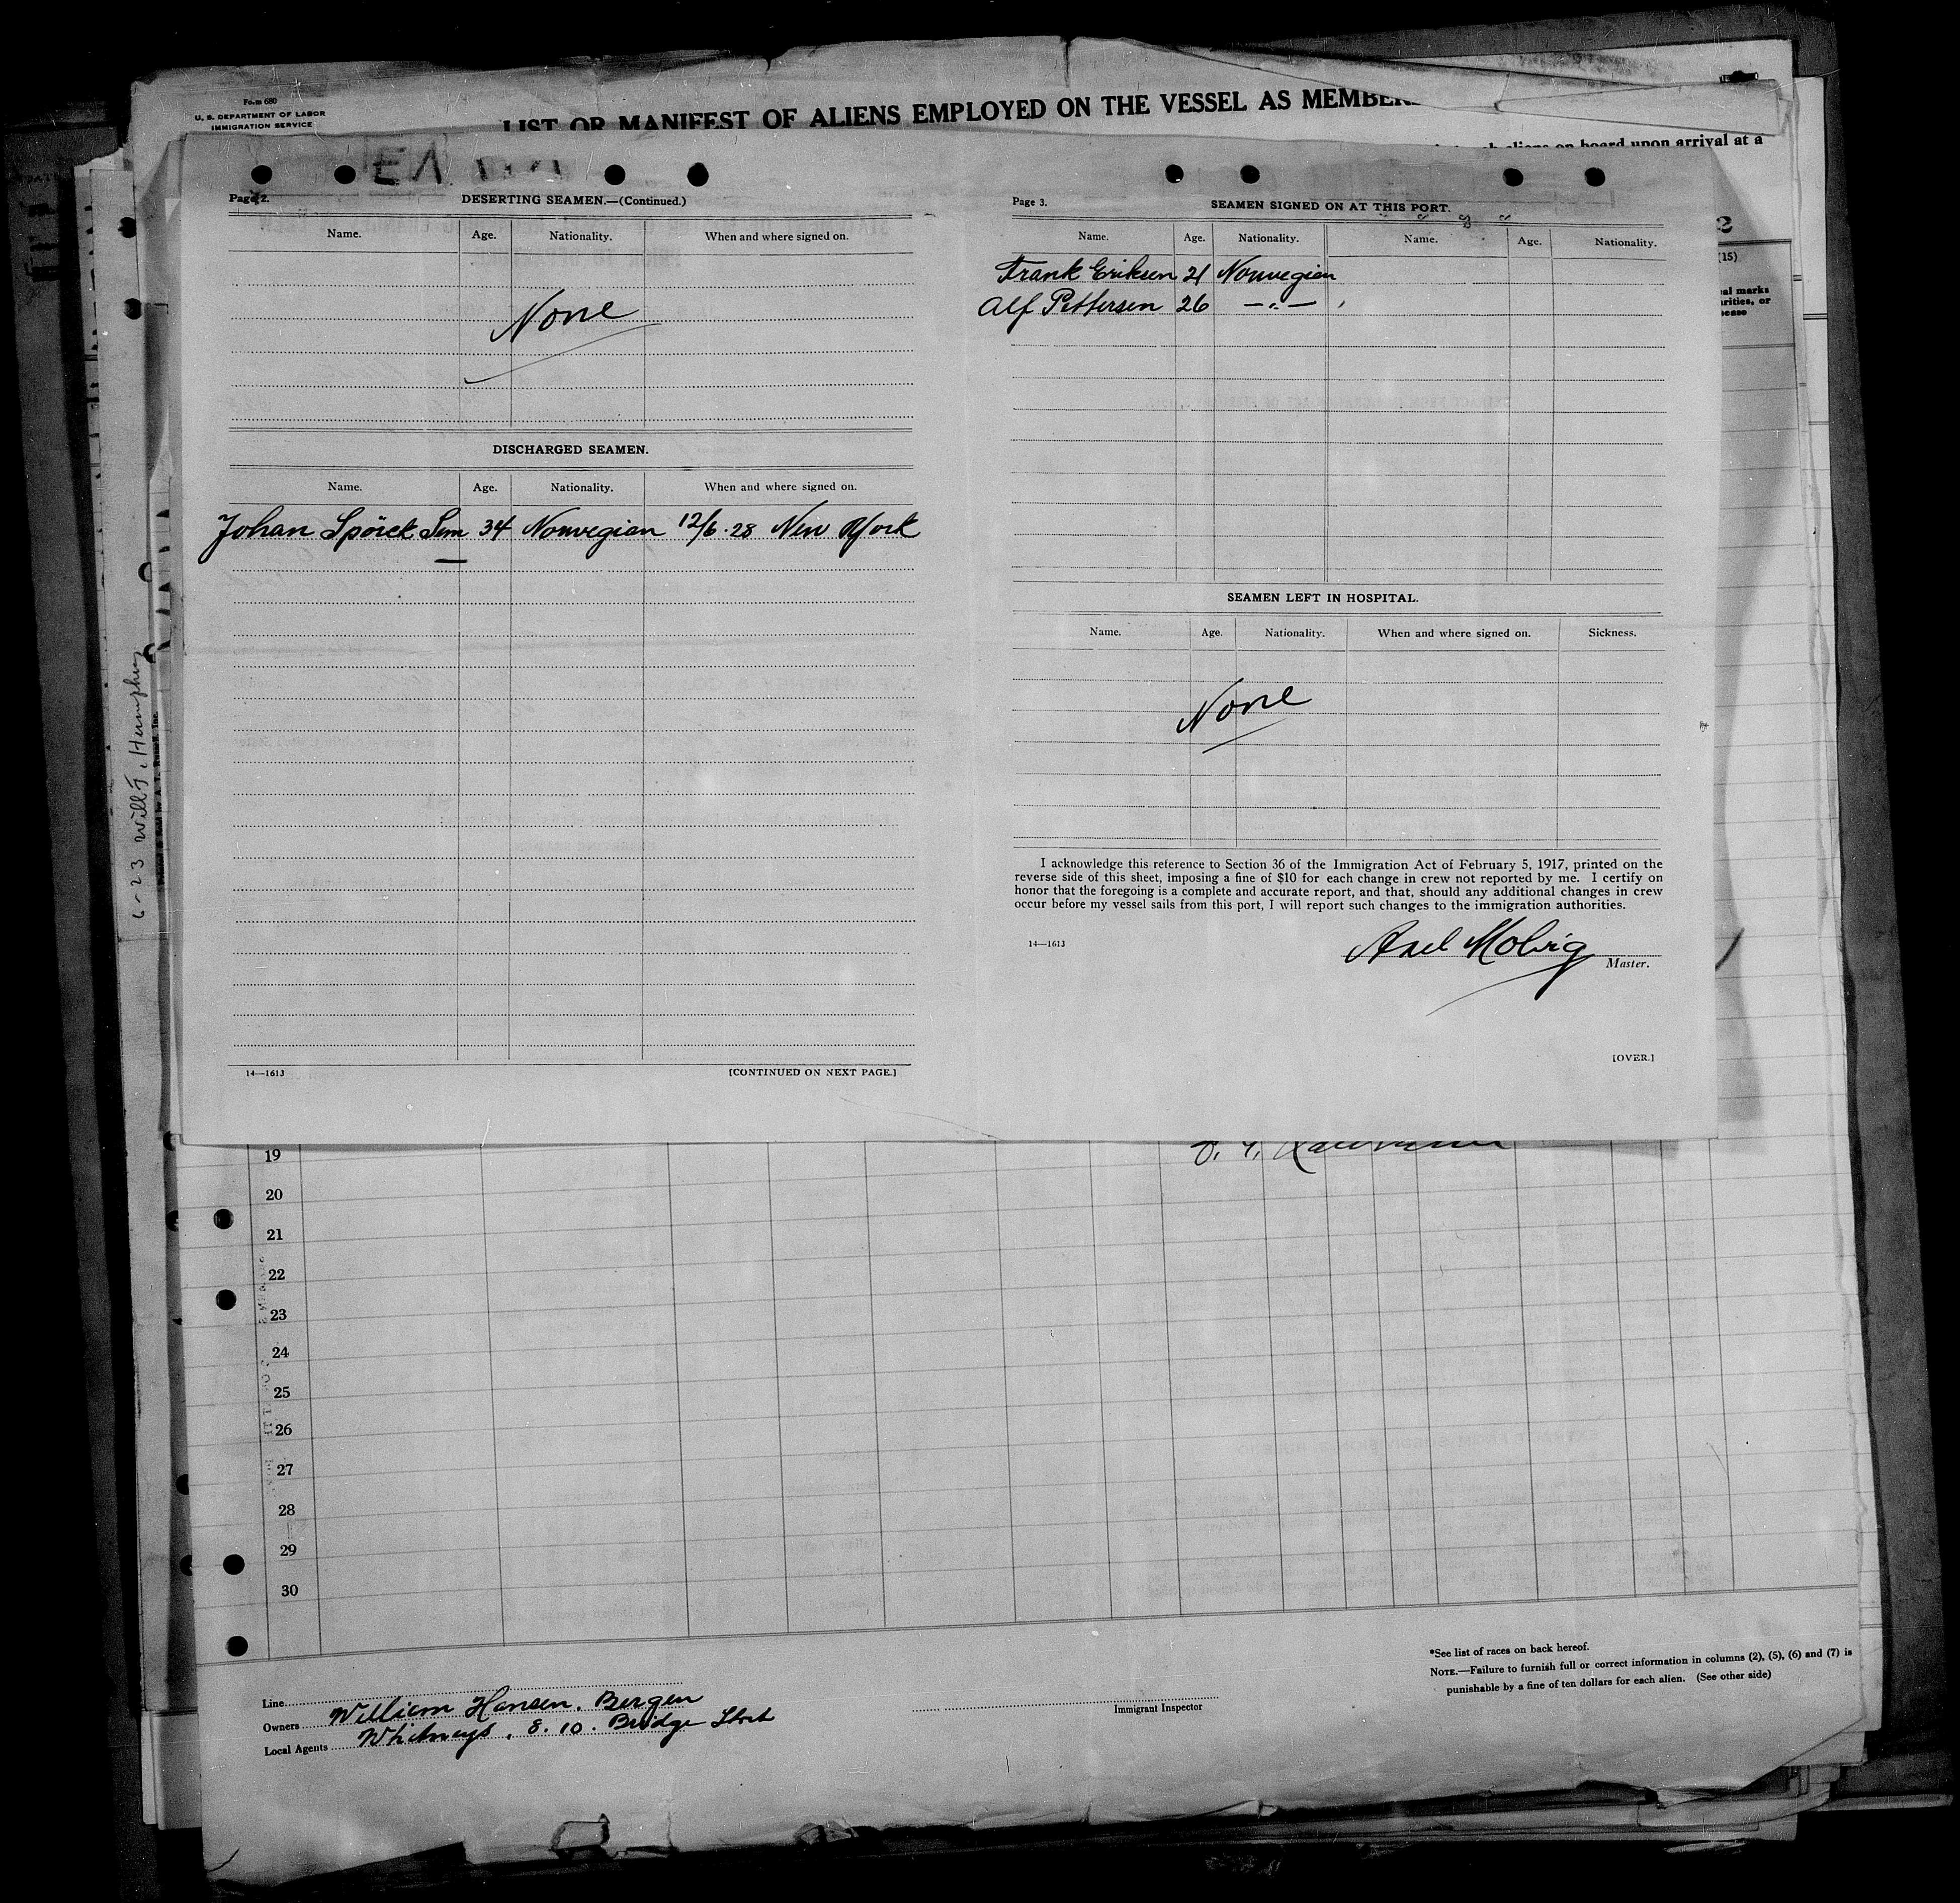 Form 680
U. S. DEPARTMENT OF LABOR
IMMIGRATION SERVICE
LIST OR MANIFEST OF ALIENS EMPLOYED ON THE VESSEL AS
aliens on board upon arrival at a
Page 2.
DESERTING SEAMEN.—(Continued.)
Name. Age. Nationality. When and where signed on.
None
DISCHARGED SEAMEN.
Name. Age. Nationality. When and where signed on.
Johan 34 Norwegian 12/6.28 New York
14—1613
[CONTINUED ON NEXT PAGE.]
Page 3.
SEAMEN SIGNED ON AT THIS PORT.
Name. Age. Nationality. Name. Age. Nationality.
Frank Eriksen 21 Norwegian
Alf Pettersen 26 —"—
SEAMEN LEFT IN HOSPITAL.
Name. Age. Nationality. When and where signed on. Sickness.
None
I acknowledge this reference to Section 36 of the Immigration Act of February 5, 1917, printed on the
reverse side of this sheet, imposing a fine of $10 for each change in crew not reported by me. I certify on
honor that the foregoing is a complete and accurate report, and that, should any additional changes in crew
occur before my vessel sails from this port, I will report such changes to the immigration authorities.
14—1613
Axel Mobrig
Master.
[OVER.]
(15)
6-23 Will J. Humphrey
19
20
21
22
23
24
25
26
27
28
29
30
Line
Owners William Hansen. Bergen
Local Agents Whitneys, 8.10. Bridge
Immigrant Inspector
*See list of races on back hereof.
NOTE.—Failure to furnish full or correct information in columns (2), (5), (6) and (7) is
punishable by a fine of ten dollars for each alien. (See other side)